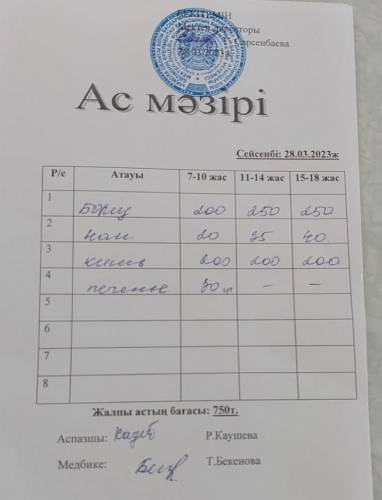 БЕКІТЕМІН
Мектеп директоры
Сәрсенбаева
28.03.2023ж
Ас мәзірі
Сейсенбі: 28.03.2023ж
Р/с Атауы 7-10 жас 11-14 жас 15-18 жас
1 Борщ 200 250 250
2 нан 20 35 40
3 кисель 200 200 200
4 печенье 30 гр - -
5
6
7
8
Жалпы астың бағасы: 750т.
Аспазшы: Р.Каушева
Медбике: Т.Бекенова